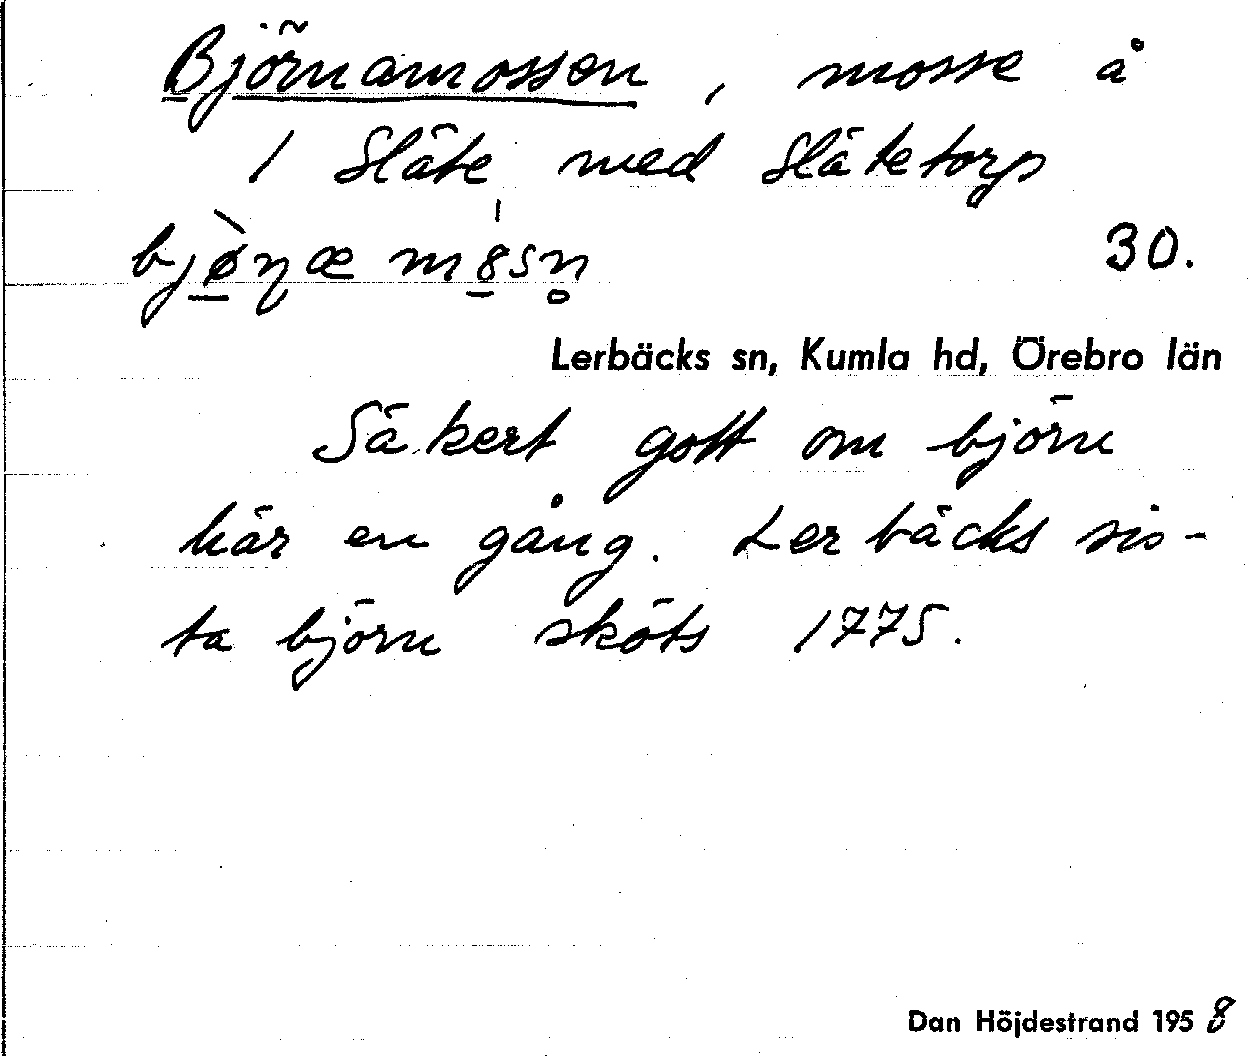 Björnamossen, mosse å
1 Släte med Slätetorp
bjø̀ɳæmˈ8sn̥ 30.
Lerbäcks sn, Kumla hd, Örebro län
Säkert gott om björn
här en gång. Lerbäcks sis-
ta björn sköts 1775.
Dan Höjdestrand 1958